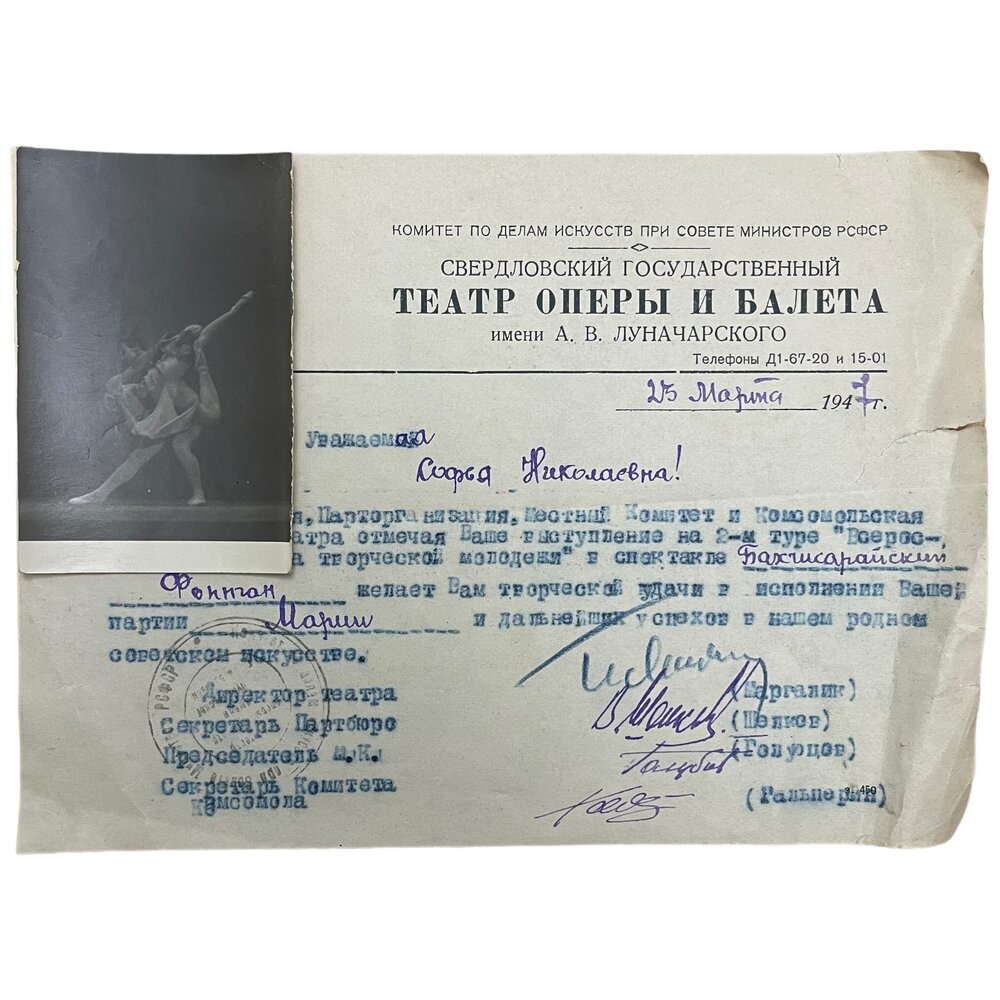 КОМИТЕТ ПО ДЕЛАМ ИСКУССТВ ПРИ СОВЕТЕ МИНИСТРОВ РСФСР
СВЕРДЛОВСКИЙ ГОСУДАРСТВЕННЫЙ
ТЕАТР ОПЕРЫ И БАЛЕТА
имени А. В. ЛУНАЧАРСКОГО
Телефоны Д1-67-20 и 15-01
25 Марта 1947 г.
Уважаемая
Софья Николаевна!
я, Парторганизация, Местный Комитет и Комсомольская
атра отмечая Ваше выступление на 2-м туре "Всерос-
а творческой молодежи" в спектакле Бахчисарайский
Фонтан желает Вам творческой удачи в исполнении Вашей
партии Марии и дальнейших успехов в нашем родном
советском искусстве.
Директор театра (Маргалик)
Секретарь Партбюро (Шелков)
Председатель М.К.
Секретарь Комитета (Гальперин)
Комсомола
450
РСФСР